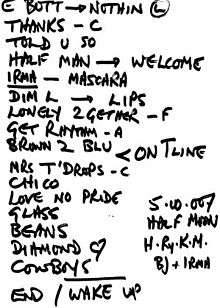 E BOTT → NOTHIN Ⓛ
THANKS - C
TOLD U SO
HALF MAN → WELCOME
IRMA - MASCARA
DIM L → LIPS
LONELY 2GETHER - F
GET RHYTHM - A
BROWN 2 BLU
< ON T LINE
MRS T'DROPS - C
CHICO
LOVE NO PRIDE
GLASS
BEANS
DIAMOND ♡
COWBOYS
END / WAKE UP
5.10.007
HALF MOON
H. Ry. K. M.
BJ + IRMA